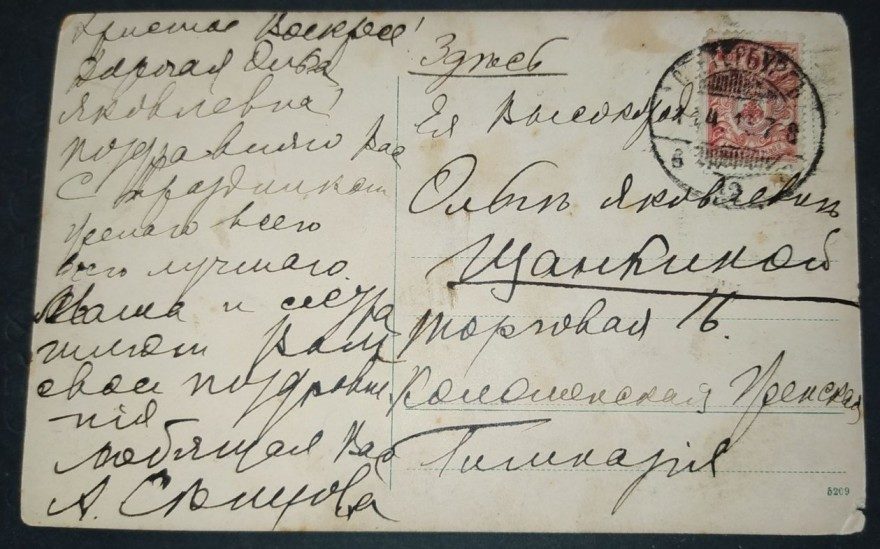 Христос Воскресе!
Дорогая Ольга
Яковлевна!
поздравляю Вас
С праздником
желаю всего
всего лучшаго.
Маша и
шлют Вам
свои поздравле
нія
Любящая Вас
А.
Здѣсь
Ея Высокород
Ольгѣ Яковлевнѣ
Щанкиной
Торговая 16.
Коломенская Женская
Гимназія
ПЕТЕРБУРГЪ
4
7 8
6
5209